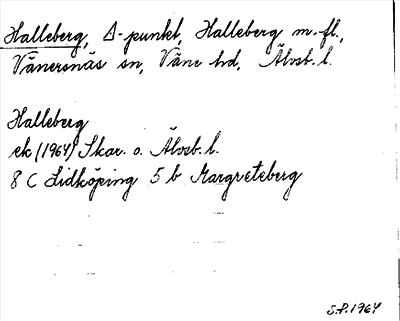 Halleberg, Δ-punkt, Halleberg m.fl.,
Vänersnäs sn, Väne hd, Älvsb. l.
Halleberg
ek (1964) Skar. o. Älvsb. l.
8 C Lidköping 5 b Margreteberg
S.P. 1964